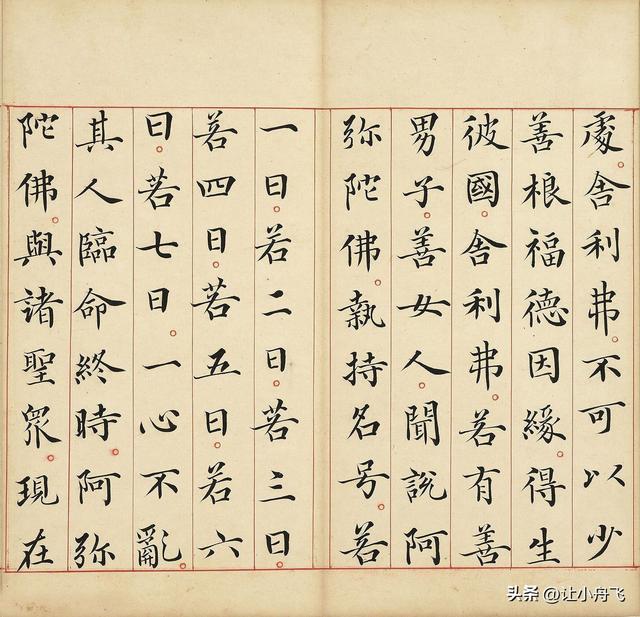 處。舍利弗。不可以少
善根福德因緣。得生
彼國。舍利弗。若有善
男子。善女人。聞說阿
弥陀佛。執持名号。若
一日。若二日。若三日。
若四日。若五日。若六
日。若七日。一心不亂。
其人臨命終時。阿弥
陀佛。與諸聖眾。現在
头条 @让小舟飞